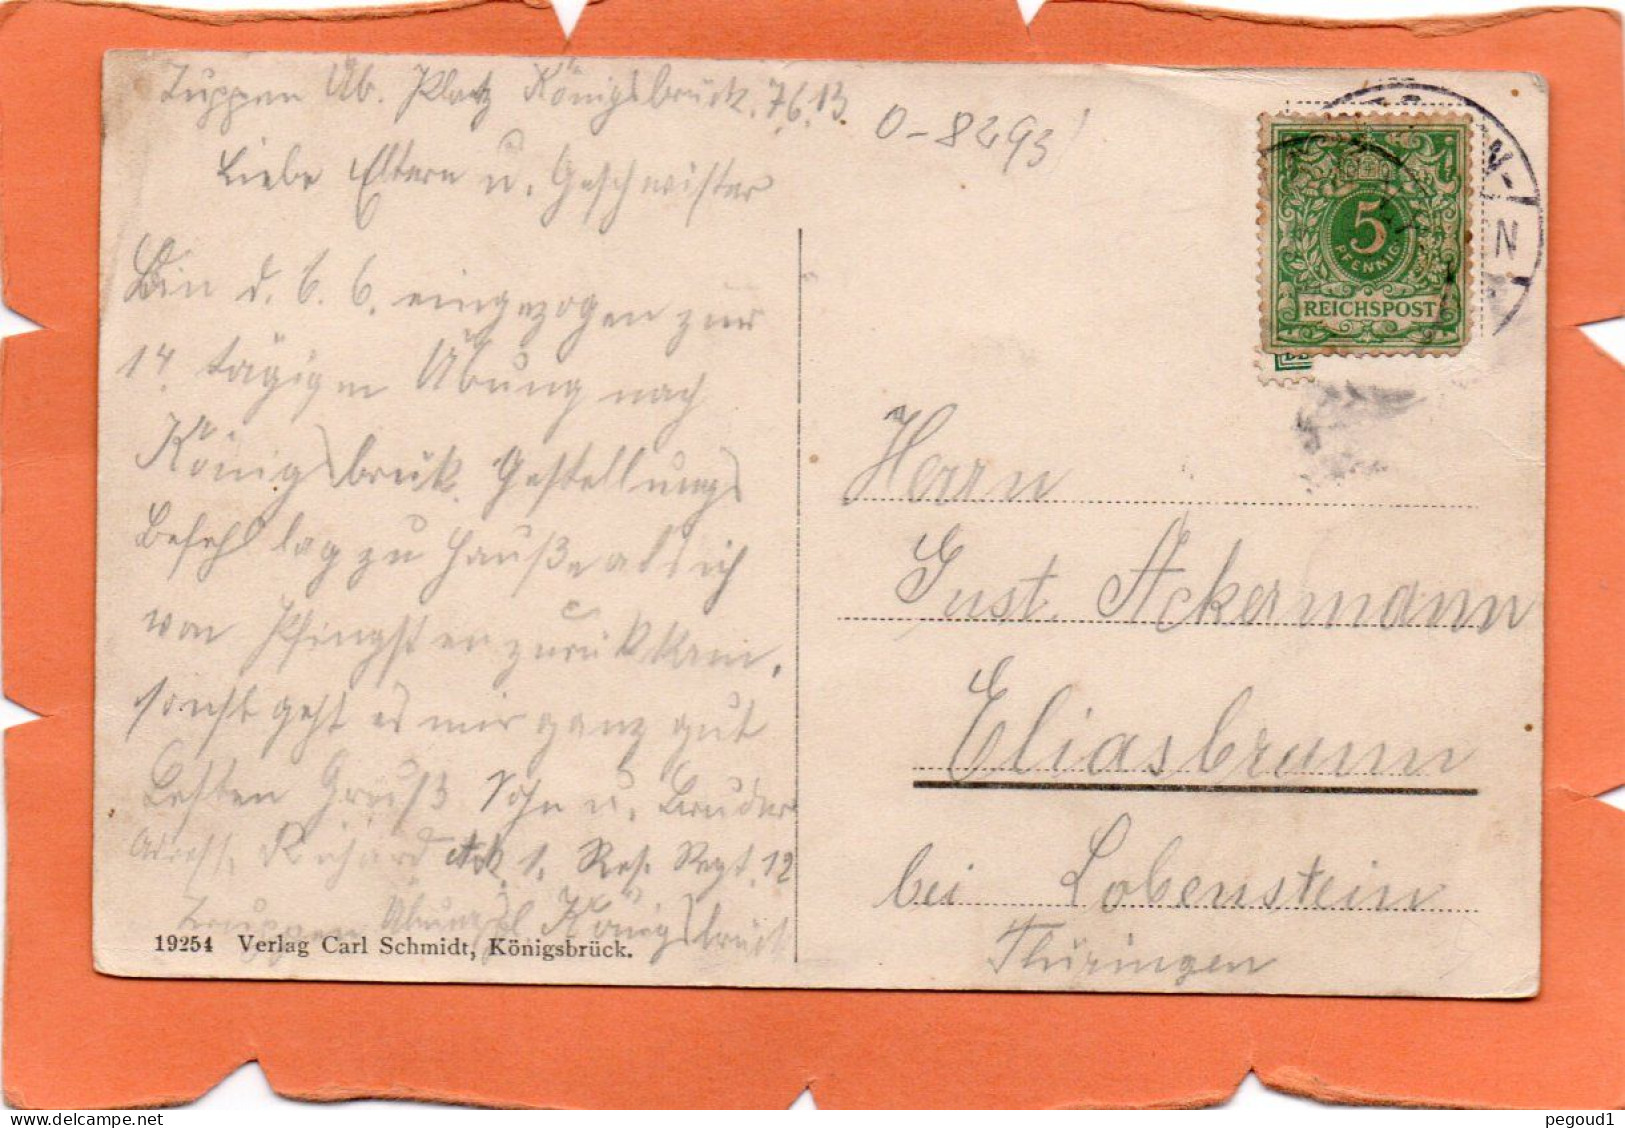 Truppen Üb. Platz Königsbrück. 7.6.13.
0-8293
Liebe Eltern u. Geschwister
Bin d. 6. 6. eingezogen zur
14 tägigen Übung nach
Königsbrück. Gestellungs
Befehl lag zu Hauße als ich
von Pfingsten zurückkam,
sonst geht es mir ganz gut
Besten Gruß Sohn u. Bruder
Adress. Richard Ack 1. Res. Regt. 12
Truppen Übungspl Königsbrück
19254 Verlag Carl Schmidt, Königsbrück.
5
PFENNIG
REICHSPOST
Herrn
Gust. Ackermann
Eliasbrunn
bei Lobenstein
Thüringen
pegoud1